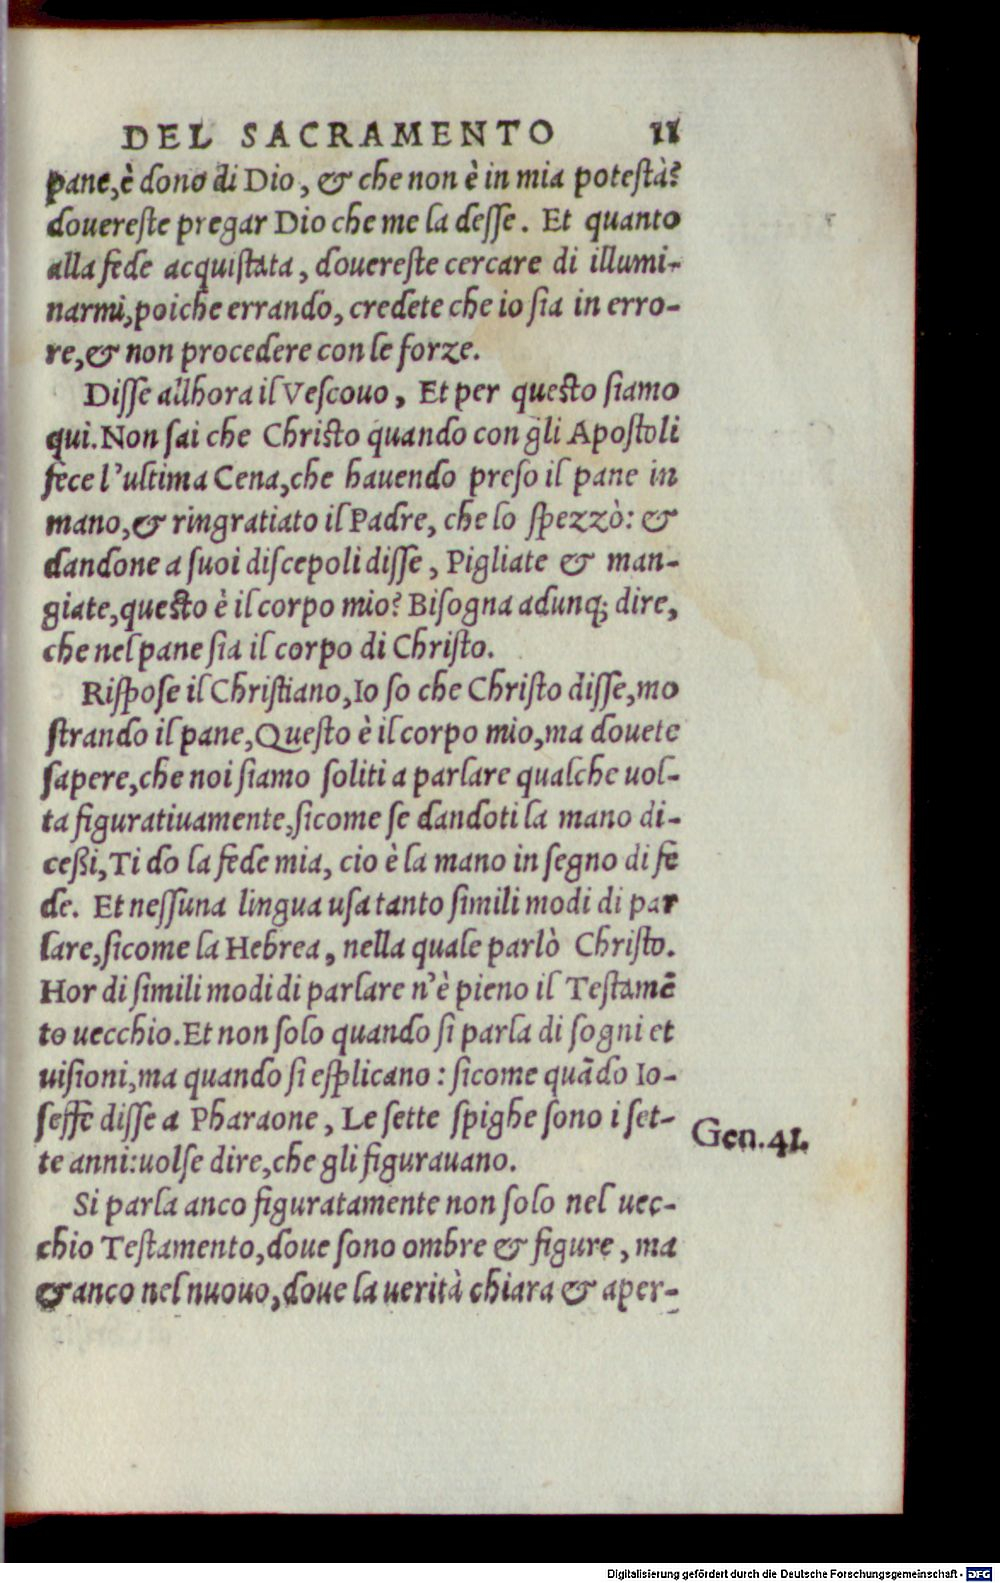 DEL SACRAMENTO 11
pane, è dono di Dio, & che non è in mia potestà?
douereste pregar Dio che me la desse. Et quanto
alla fede acquistata, douereste cercare di illumi-
narmi, poiche errando, credete che io sia in erro-
re, & non procedere con le forze.
Disse allhora il Vescouo, Et per questo siamo
qui. Non sai che Christo quando con gli Apostoli
fece l'ultima Cena, che hauendo preso il pane in
mano, & ringratiato il Padre, che lo spezzò: &
dandone a suoi discepoli disse, Pigliate & man-
giate, questo è il corpo mio? Bisogna adunq; dire,
che nel pane sia il corpo di Christo.
Rispose il Christiano, Io so che Christo disse, mo
strando il pane, Questo è il corpo mio, ma douete
sapere, che noi siamo soliti a parlare qualche uol-
ta figuratiuamente, sicome se dandoti la mano di-
ceßi, Ti do la fede mia, cio è la mano in segno di fe
de. Et nessuna lingua usa tanto simili modi di par
lare, sicome la Hebrea, nella quale parlò Christo.
Hor di simili modi di parlare n'è pieno il Testamē
to uecchio. Et non solo quando si parla di sogni et
uisioni, ma quando si esplicano: sicome quādo Io-
seffe disse a Pharaone, Le sette spighe sono i set-
te anni: uolse dire, che gli figurauano.
Gen. 41.
Si parla anco figuratamente non solo nel uec-
chio Testamento, doue sono ombre & figure, ma
& anco nel nuouo, doue la uerità chiara & aper-
Digitalisierung gefördert durch die Deutsche Forschungsgemeinschaft - DFG